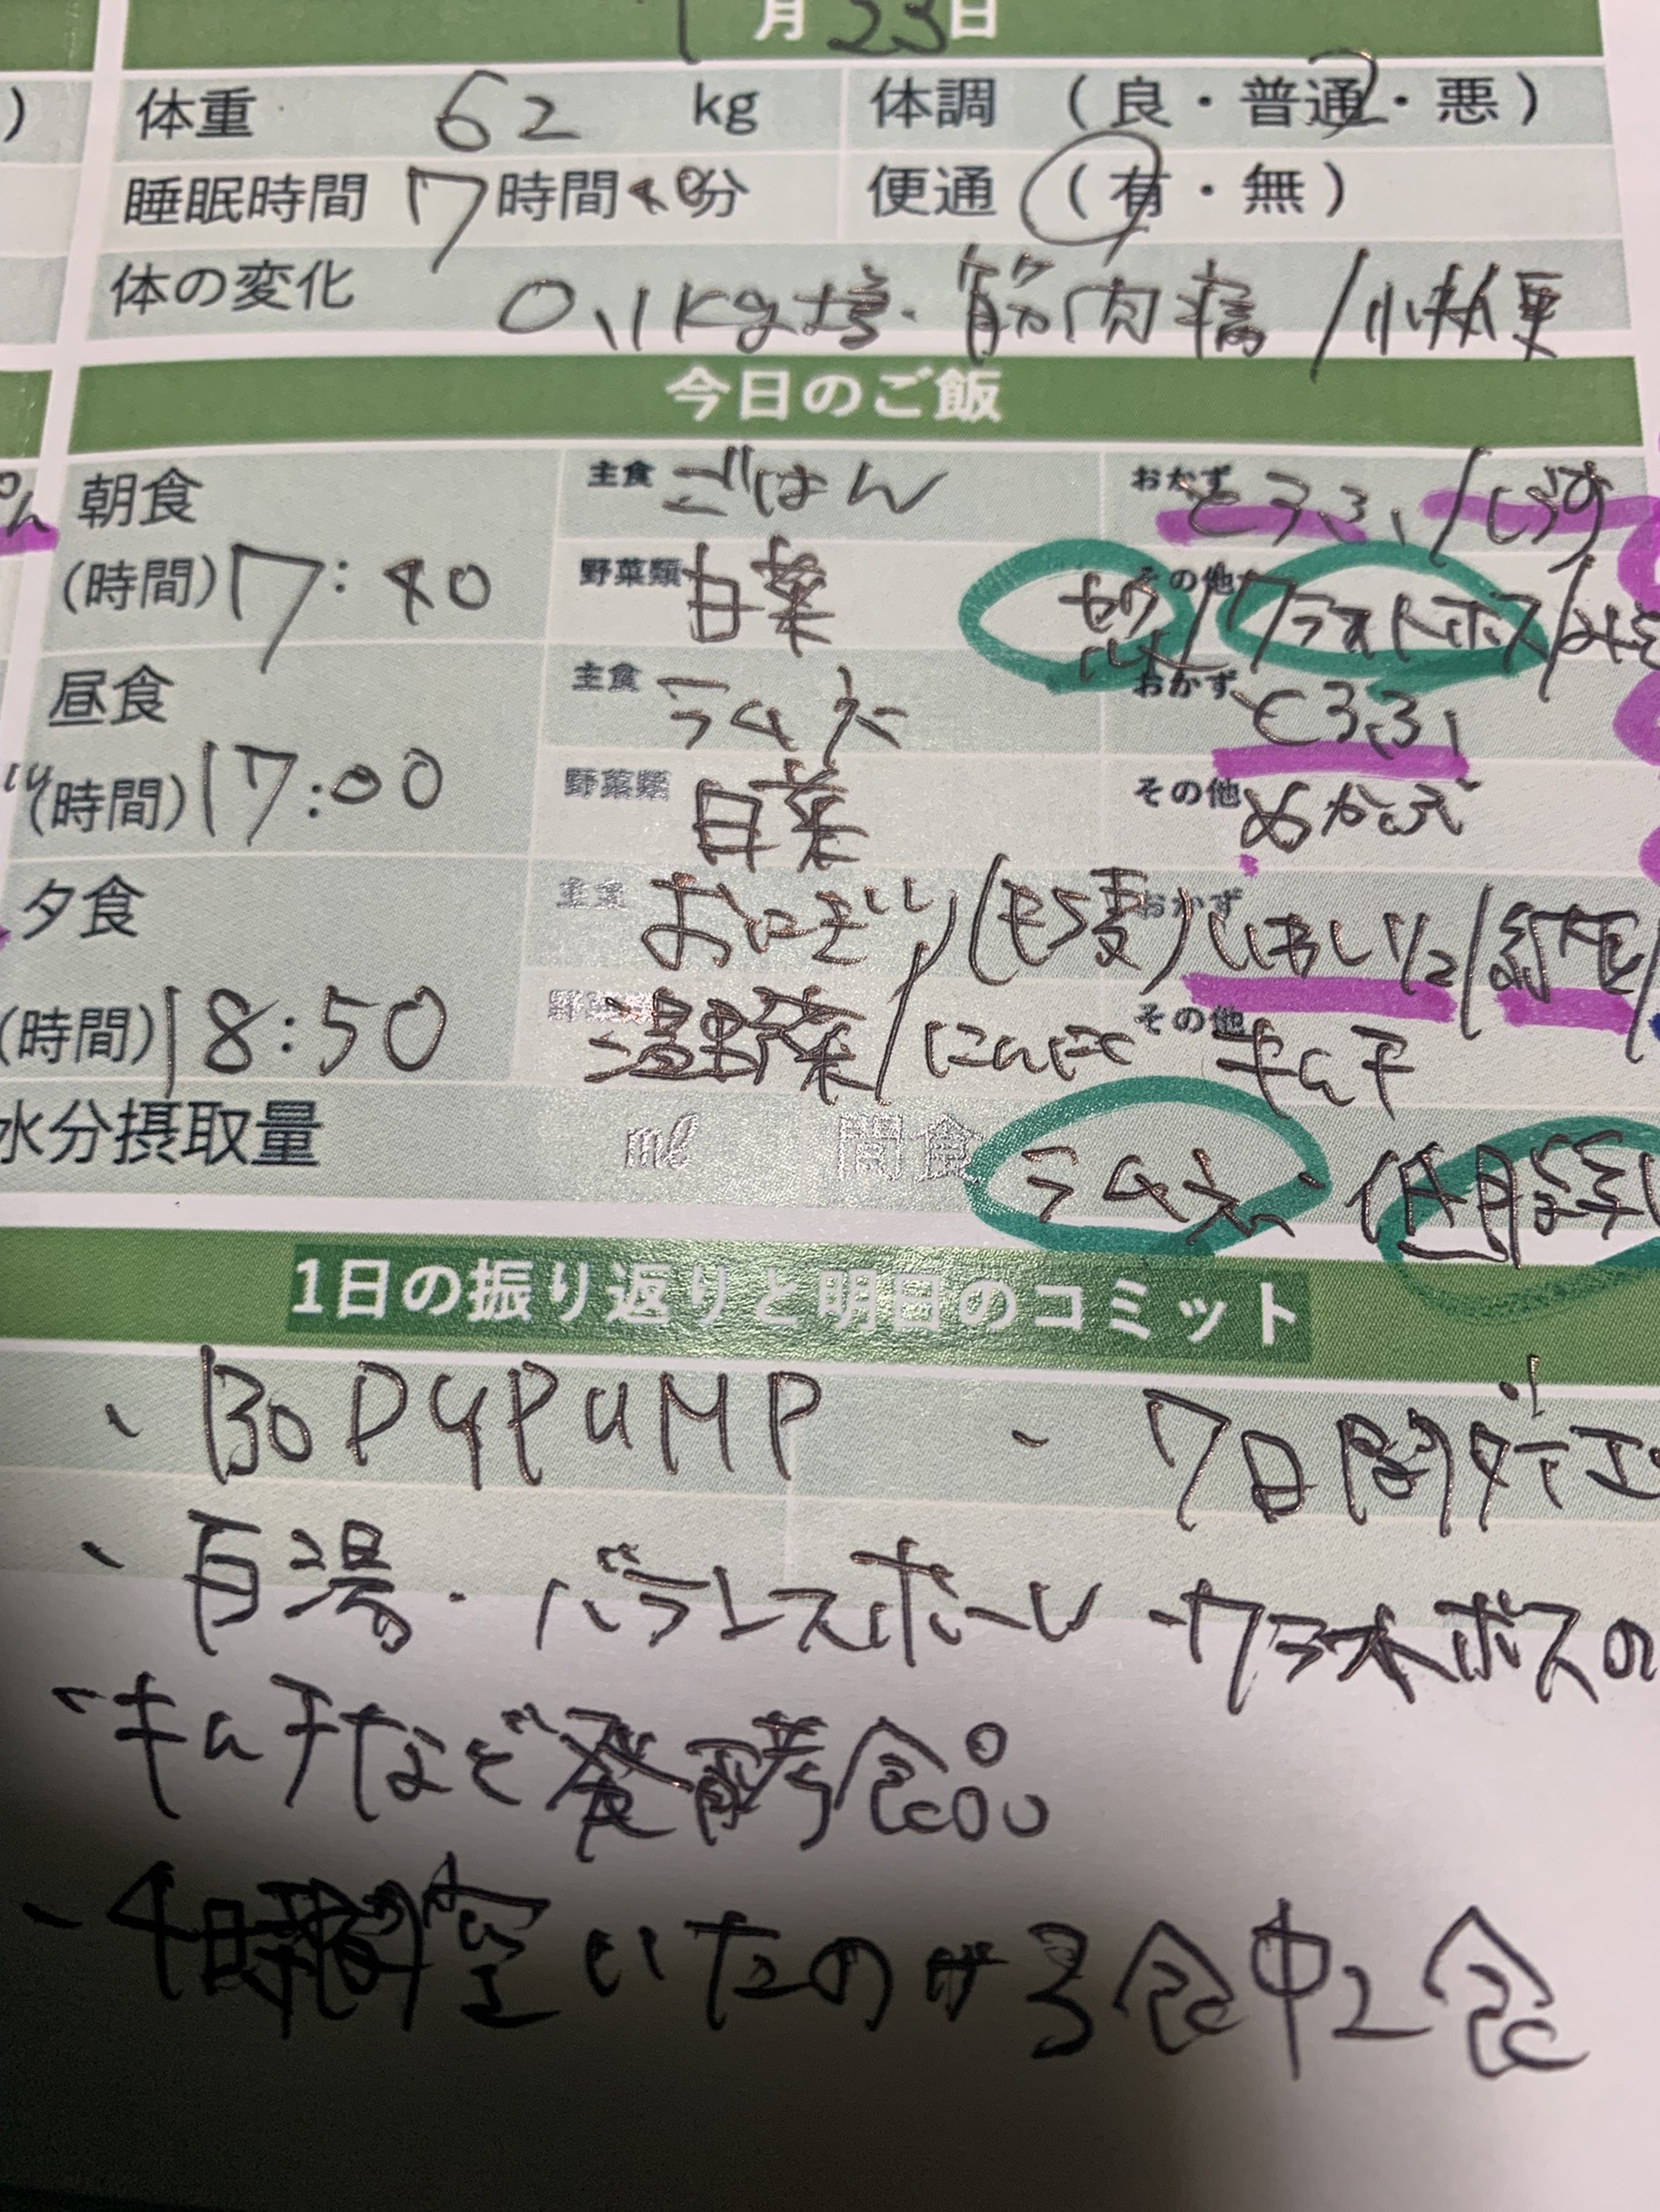 1月23日
体重 62 kg 体調 (良・普通・悪)
睡眠時間 7時間40分 便通 (有・無)
体の変化 0.1kg増・筋肉痛/小快便
今日のご飯
朝食 主食 ごはん おかず とうふ/しらす
(時間)7:40 野菜類 白菜 その他 クラフトボス
昼食 主食 ラムネ おかず とうふ
(時間)17:00 野菜類 白菜 その他 めかぶ
夕食 主食 おにぎり(もち麦) おかず いわし1/2/納豆
(時間)18:50 野菜 温野菜/にんにく その他 キムチ
水分摂取量 ml 間食 ラムネ、低脂
1日の振り返りと明日のコミット
、BODYPUMP 、7日間
、白湯・バランスボール ・クラフトボスの
・キムチなど発酵食品
、4時間空いたのが3食中2食